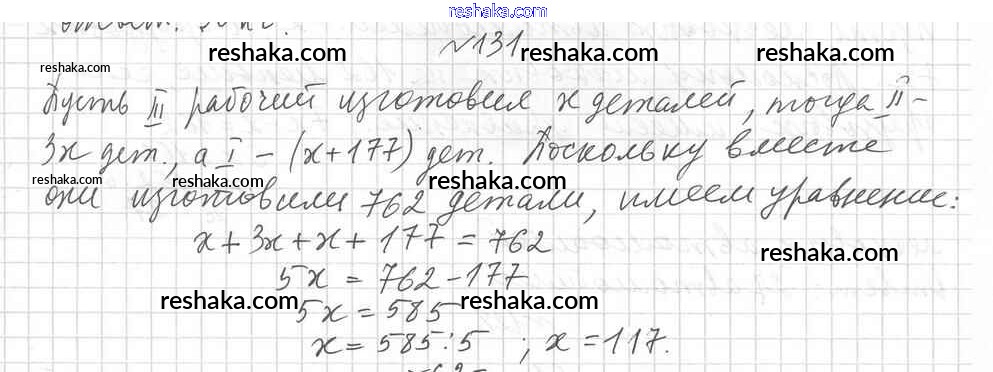 reshaka.com
reshaka.com
№131
reshaka.com
reshaka.com
Пусть III рабочий изготовил x деталей, тогда II –
3x дет., а I – (x+177) дет. Поскольку вместе
reshaka.com
reshaka.com
reshaka.com
они изготовили 762 детали, имеем уравнение:
x + 3x + x + 177 = 762
reshaka.com
5x = 762 – 177
reshaka.com
reshaka.com
5x = 585
x = 585 : 5 ; x = 117.